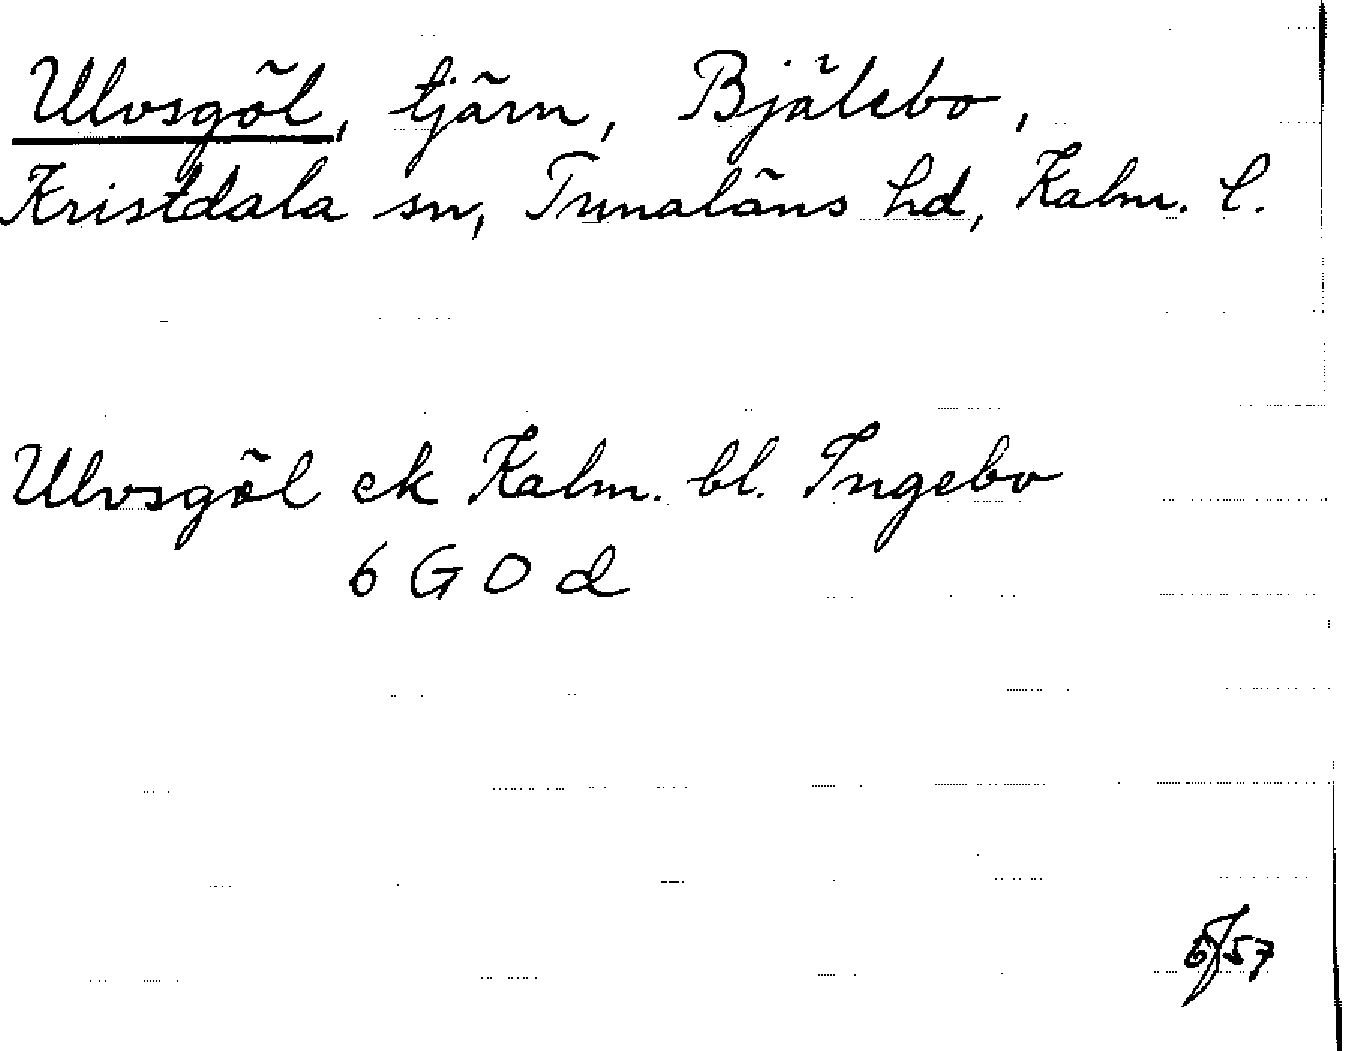 Ulvsgöl, tjärn, Bjälebo,
Kristdala sn, Tunaläns hd, Kalm. l.
Ulvsgöl ek Kalm. bl. Ingebo
6 G O d
57